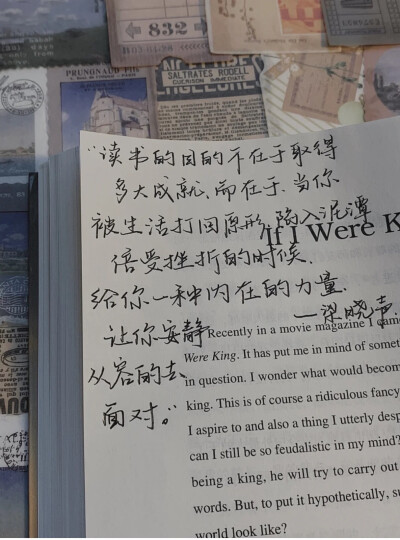 832
PRUNONAUD FILS
SALTRATES RODELL
“读书的目的不在于取得
多大成就、而在于、当你
被生活打回原形、陷入泥潭
倍受挫折的时候、
给你一种内在的力量.
—梁晓声
让你安静
从容的去
面对。”
If I Were K
Recently in a movie magazine I came
Were King. It has put me in mind of somet
in question. I wonder what would becom
king. This is of course a ridiculous fancy
I aspire to and also a thing I utterly desp
can I still be so feudalistic in my mind?
being a king, he will try to carry out
words. But, to put it hypothetically, su
world look like?